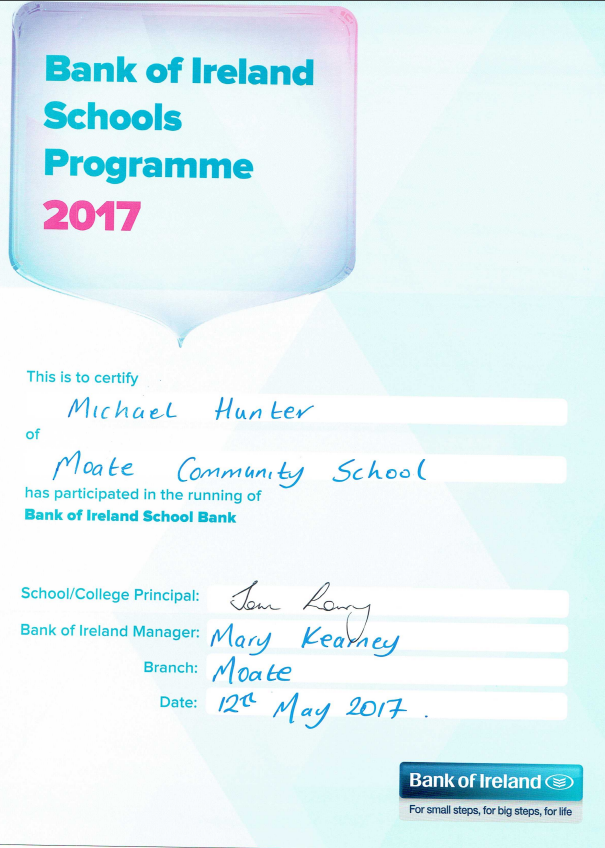 Bank of Ireland
Schools
Programme
2017
This is to certify
Michael Hunter
of
Moate Community School
has participated in the running of
Bank of Ireland School Bank
School/College Principal: Tom Lowry
Bank of Ireland Manager: Mary Kearney
Branch: Moate
Date: 12th May 2017.
Bank of Ireland
For small steps, for big steps, for life